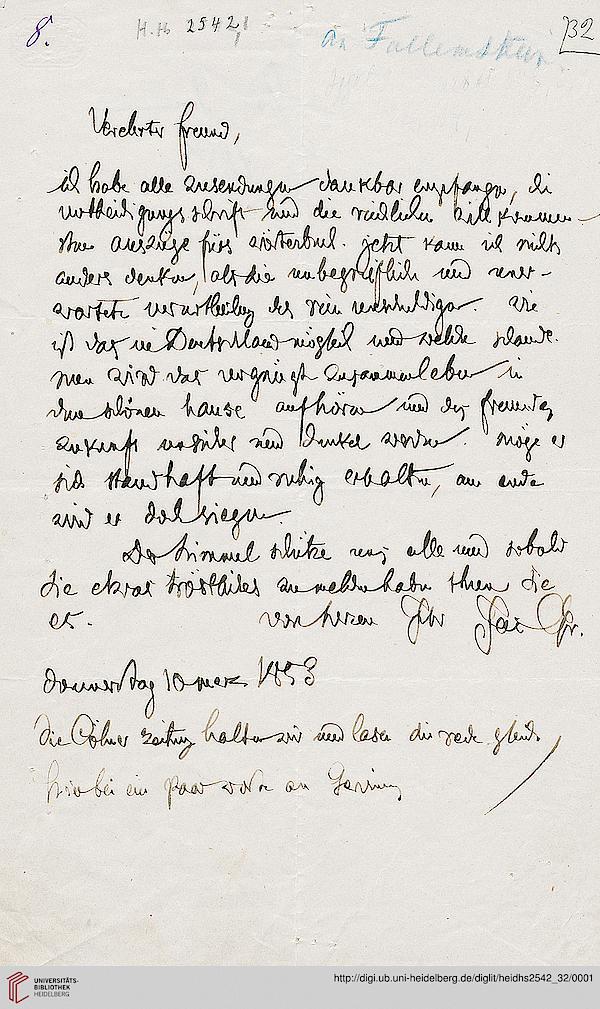 8.
H. Hs 2542,1
an Fallenstein
32
Verehrter freund,
ich habe alle zusendungen dankbar empfangen, die
vertheidigungsschrift und die reichlichen willkommen-
sten auszüge fürs wörterbuch. jetzt kann ich nichts
anders denken, als die unbegreifliche und uner-
wartete verurtheilung des rein unschuldigen. wie
ist das in Deutschland möglich und welche schande.
nun wird das vergnügte zusammenleben in
dem schönen hause aufhören und des freundes
zukunft unsicher und dunkel werden. möge er
sich standhaft und ruhig erhalten, am ende
wird er doch siegen.
Der himmel schütze uns alle und sobald
Sie etwas tröstliches zu melden haben thun Sie
es. von herzen Ihr Jac Gr.
donnerstag 10 merz 1853
Die Cölner zeitung halten wir und lasen die rede gleich.
hierbei ein paar worte an Gervinus
UNIVERSITÄTS-
BIBLIOTHEK
HEIDELBERG
http://digi.ub.uni-heidelberg.de/diglit/heidhs2542_32/0001